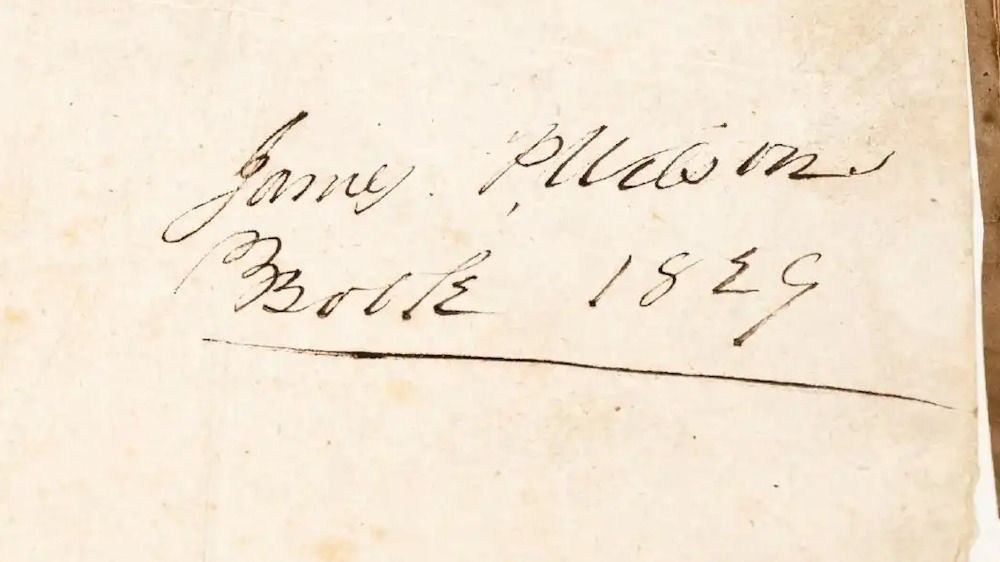 James P. Wilson
Book 1829